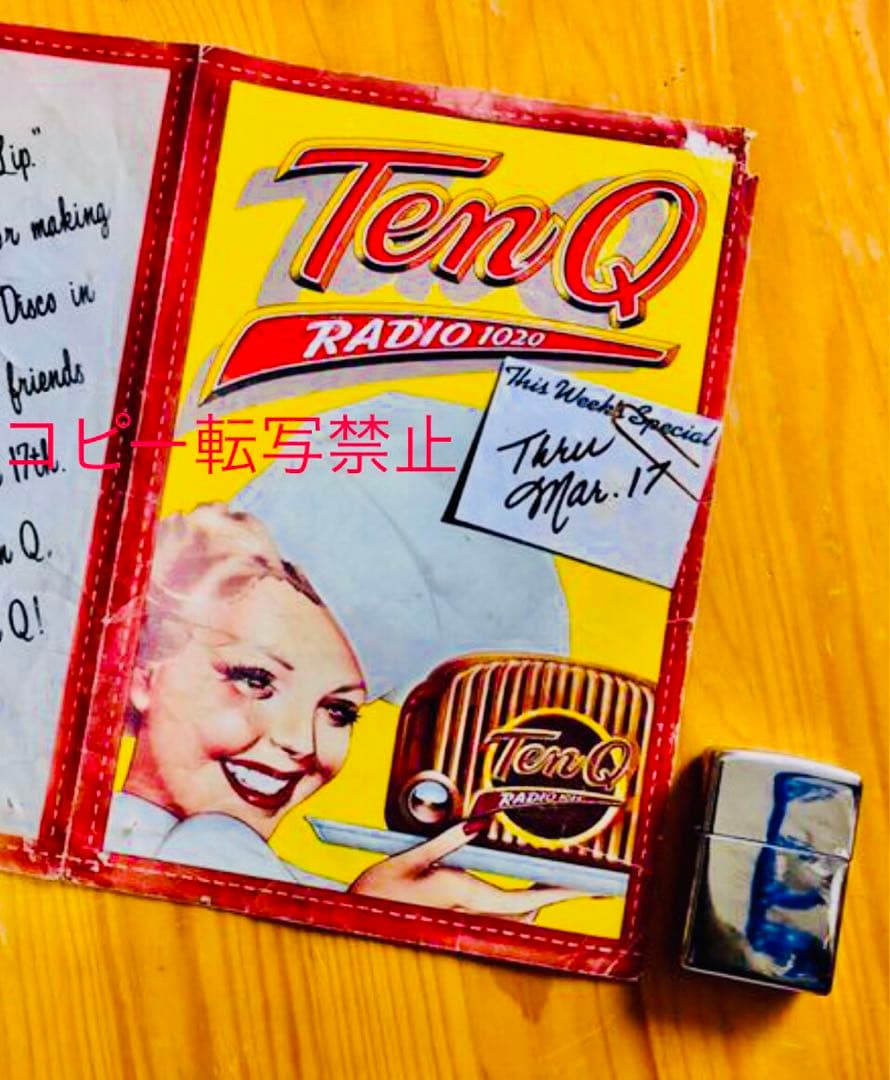 Lip."
making
Disco in
friends
17th.
Q.
Q!
TenQ
RADIO 1020
This Week's Special
Thru
Mar. 17
コピー転写禁止
TenQ
RADIO